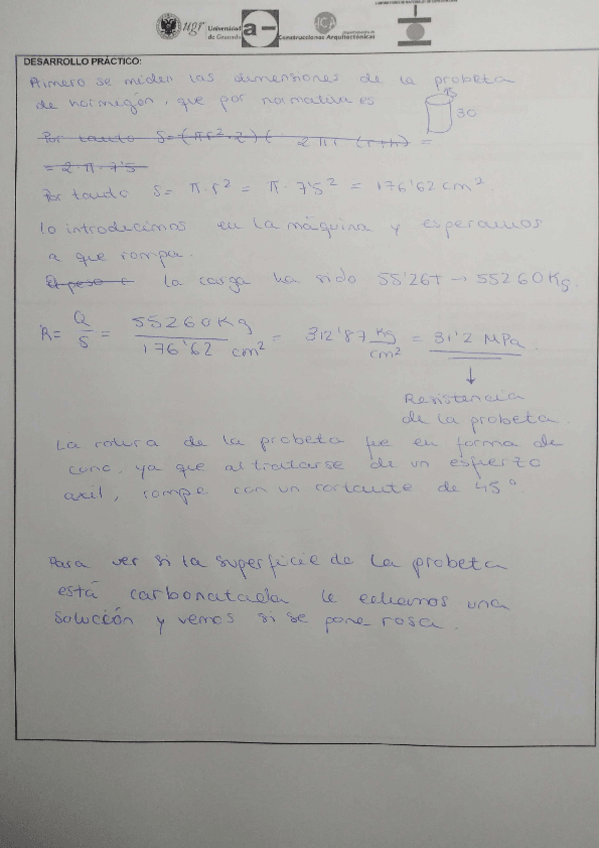 ugr
Universidad
de Granada
a-
Construcciones Arquitectónicas
DESARROLLO PRÁCTICO:
Primero se miden las dimensiones de la probeta
de hormigón, que por normativa es
15
30
Por tanto S=(πr²·2)( 2πr (r+h) =
= 2·π·7'5
Por tando S= π·r² = π·7'5² = 176'62 cm².
Lo introducimos en la máquina y esperamos
a que rompa.
El peso e la carga ha sido 55'26T → 55260Kg.
R= Q/S = 55260Kg/176'62 cm² = 312'87 Kg/cm² = 31'2 MPa
Resistencia
de la probeta.
La rotura de la probeta fue en forma de
cono, ya que al tratarse de un esfuerzo
axil, rompe con un cortante de 45°.
Para ver si la superficie de la probeta
está carbonatada le echamos una
solución y vemos si se pone rosa.